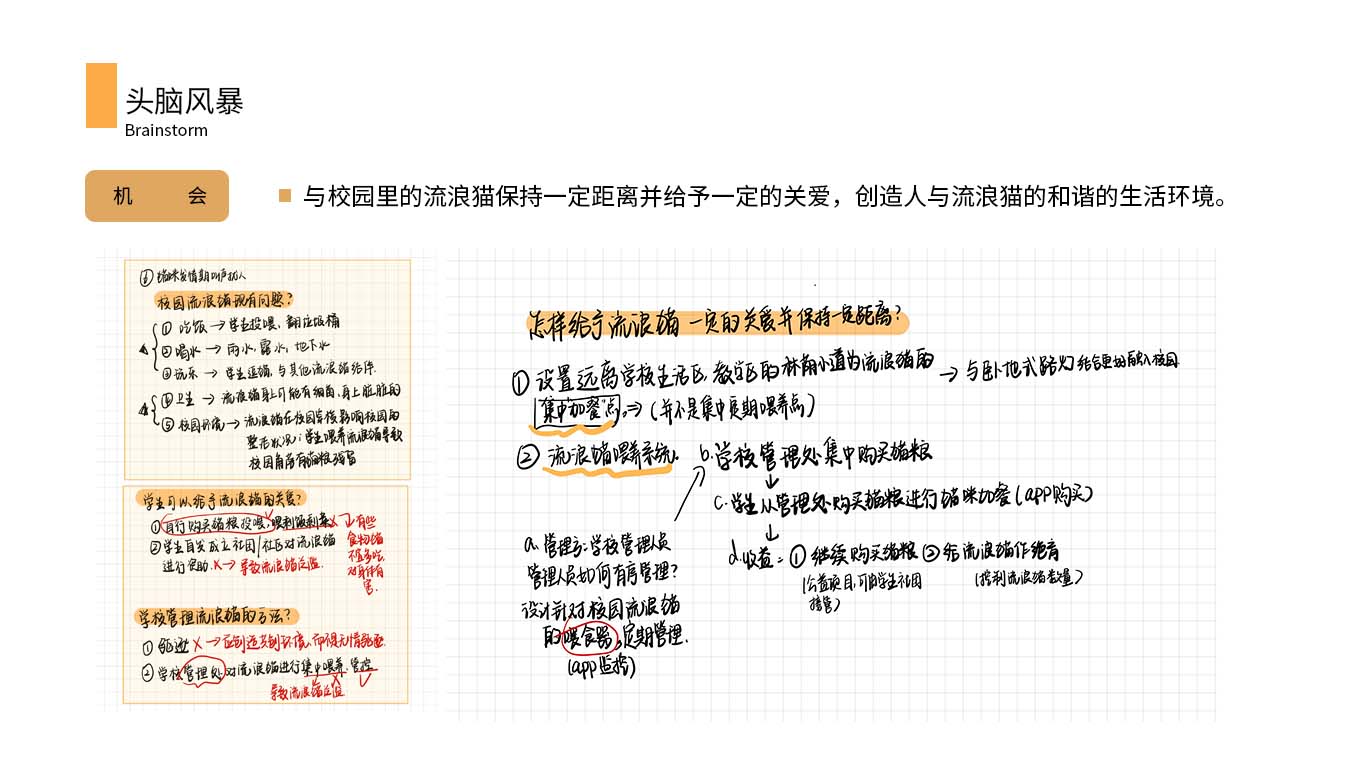 头脑风暴
Brainstorm
机 会
与校园里的流浪猫保持一定距离并给予一定的关爱，创造人与流浪猫的和谐的生活环境。
⑥ 猫咪发情期叫声扰人
校园流浪猫现有问题？
① 吃饭 → 学生投喂、翻垃圾桶
② 喝水 → 雨水，露水，地下水
③ 玩乐 → 学生逗猫，与其他流浪猫结伴
④ 卫生 → 流浪猫身上可能有细菌，身上脏脏的
⑤ 校园环境 → 流浪猫在校园等待影响校园的
整形状况；学生喂养流浪猫导致
校园角落有猫粮残留
学生可以给予流浪猫的关爱？
① 自行购买猫粮投喂，喂剩饭剩菜 X → 有些
食物猫
不宜多吃，
对身体有
害．
② 学生自发成立社团/社区对流浪猫
进行救助．X → 导致流浪猫泛滥．
学校管理流浪猫的方法？
① 驱逐 X →
② 学校管理处对流浪猫进行集中喂养，管控
导致流浪猫泛滥
怎样给予流浪猫一定的关爱并保持一定距离？
① 设置远离学校生活区，教学区的林荫小道为流浪猫的 → 与卧地式路灯结合更好的融入校园
"集中加餐"点 ⇒（并不是集中定期喂养点）
② 流浪猫喂养系统．
b．学校管理处集中购买猫粮
c．学生从管理处购买猫粮进行猫咪加餐（app购买）
d．收益：① 继续购买猫粮 ② 给流浪猫作绝育
（公益项目，可由学生社团
接管）
（控制流浪猫数量）
a．管理方：学校管理员
管理人员如何有序管理？
设计针对校园流浪猫
的喂食器，定期管理．
（app监控）